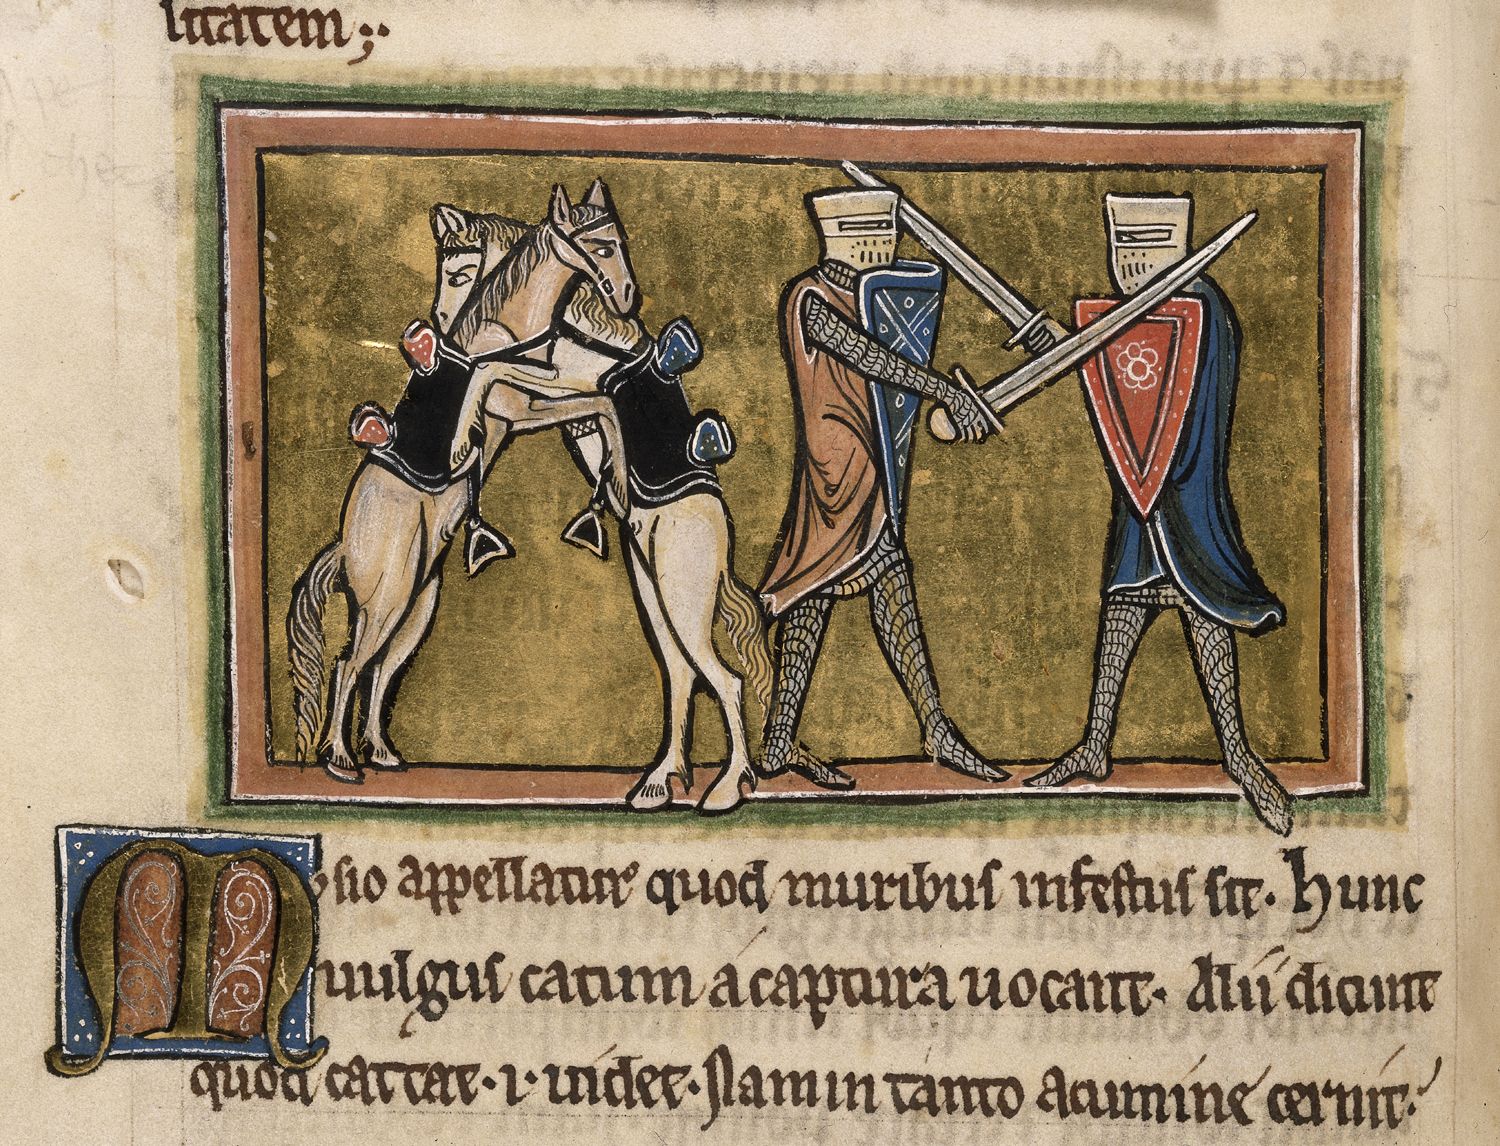 litatem;
Musio appellatur quod muribus infestus sit. Hunc
uulgus catum a captura uocant. Alii dicunt
quod cattat .i. uidet. Nam in tanto acumine cernit.